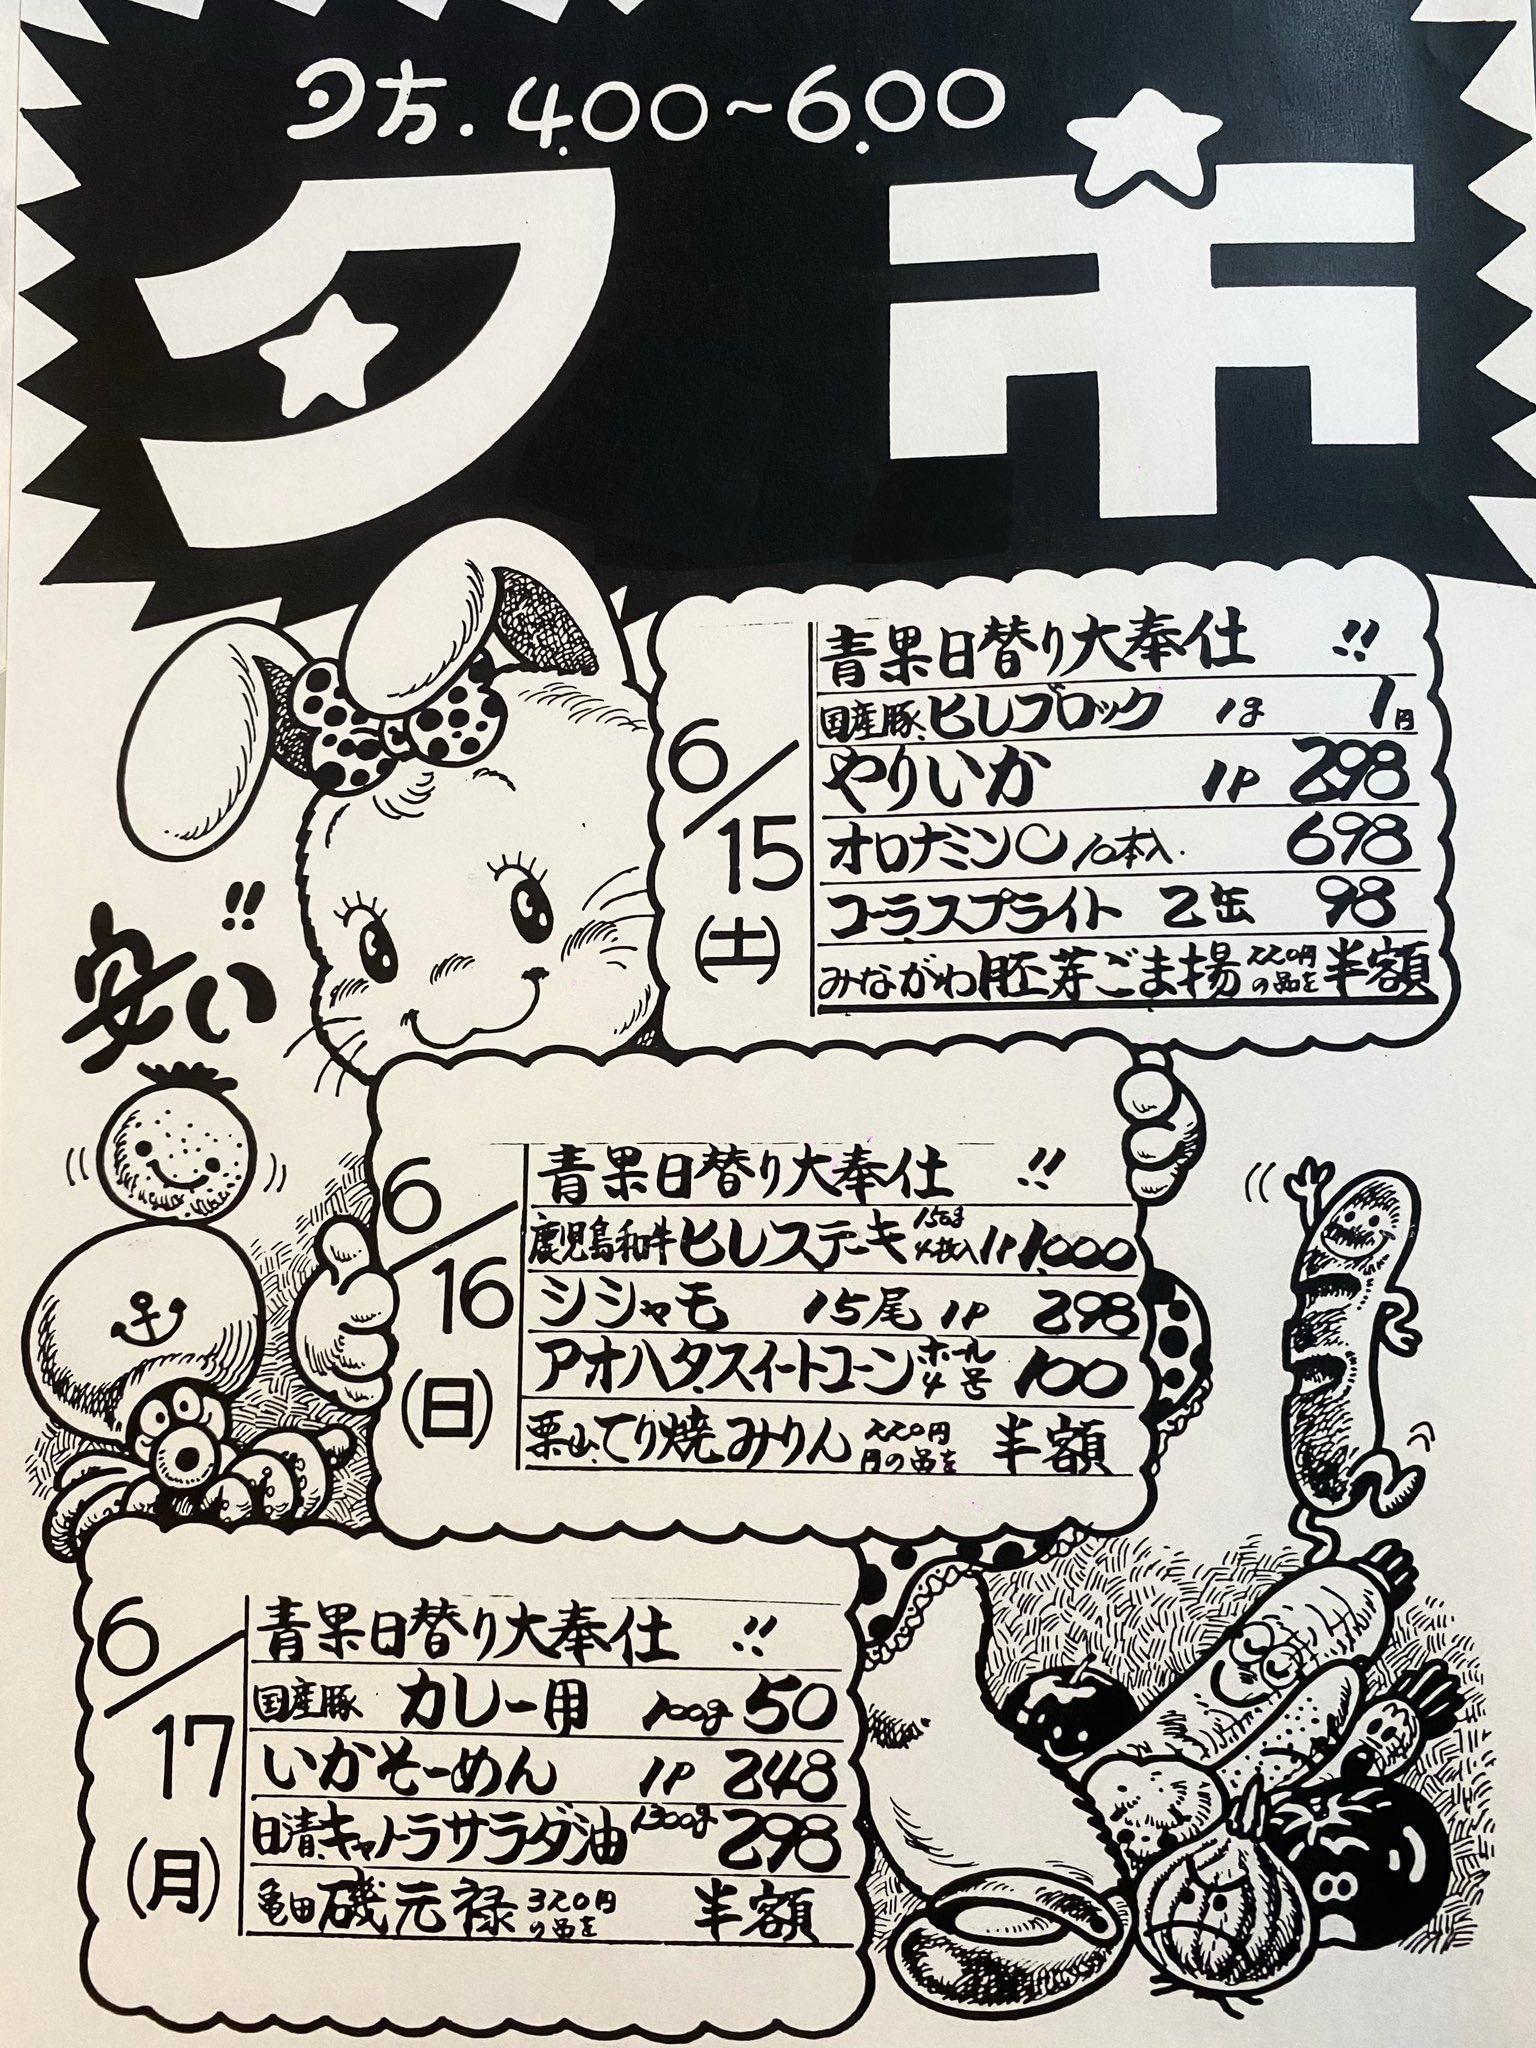 夕方.4.00～6.00
夕市
安い!!
6/15(土)
青果日替り大奉仕!!
国産豚.ヒレブロック 1g 1円
やりいか 1P 298
オロナミンC 10本入. 698
コーラ.スプライト 2缶 98
みながわ胚芽ごま揚 220円の品を 半額
6/16(日)
青果日替り大奉仕!!
鹿児島和牛ヒレステーキ 150g 4枚入 1P 1,000
シシャモ 15尾 1P 298
アオハタ.スイートコーン ホール 4号 100
栗山.てり焼みりん 220円 円の品を 半額
6/17(月)
青果日替り大奉仕!!
国産豚 カレー用 100g 50
いかそーめん 1P 248
日清.キャノーラサラダ油 1300g 298
亀田 磯元禄 320円の品を 半額